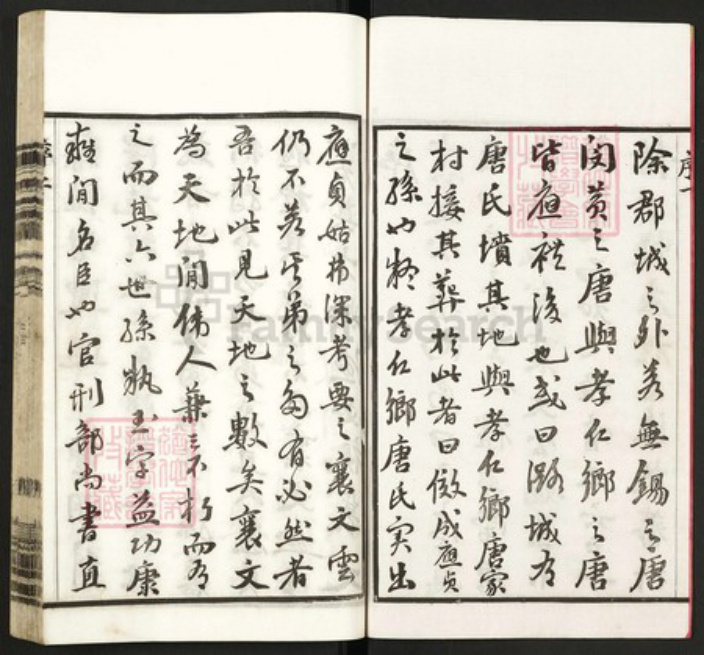 除郡城之外若無錫之唐
閔黄之唐與孝仁鄉之唐
皆應祺後也或曰潞城有
唐氏墳其地與孝仁鄉唐家
村接其葬於此者曰俶成應貞
之孫也於孝仁鄉唐氏実出
應貞姑弗深考要之襄文雲
仍不若其弟之多有必然者
吾於此見天地之數矣襄文
為天地間偉人兼三不朽而有
之而其六世孫執玉字益功康
雍間名臣也官刑部尚書直
序一
序二
FamilySearch